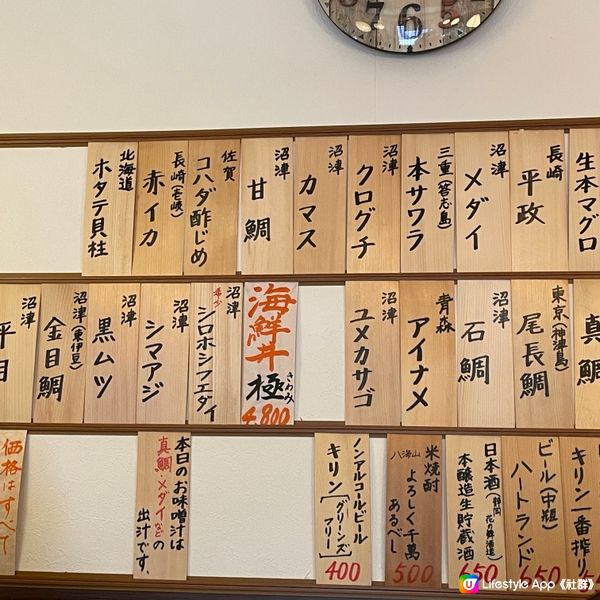 7 6 5
生本マグロ
長崎
平政
沼津
メダイ
三重(答志島)
本サワラ
沼津
クログチ
沼津
カマス
沼津
甘鯛
佐賀
コハダ酢じめ
長崎(壱岐)
赤イカ
北海道
ホタテ貝柱
真鯛
東京(神津島)
尾長鯛
沼津
石鯛
青森
アイナメ
沼津
ユメカサゴ
海鮮丼
極
きわみ
4,800
沼津
希少
シロホシフエダイ
沼津
シマアジ
沼津
黒ムツ
沼津(東伊豆)
金目鯛
沼津
平目
キリン一番搾り
ビール(中瓶)
ハートランド
650
日本酒(静岡 花の舞酒造)
本醸造生貯蔵酒
650
米焼酎
八海山
よろしく千萬
あるべし
500
ノンアルコールビール
キリン[グリーンズフリー]
400
本日のお味噌汁は
真鯛・メダイなどの
出汁です、
価格はすべて
U Lifestyle App《社群》